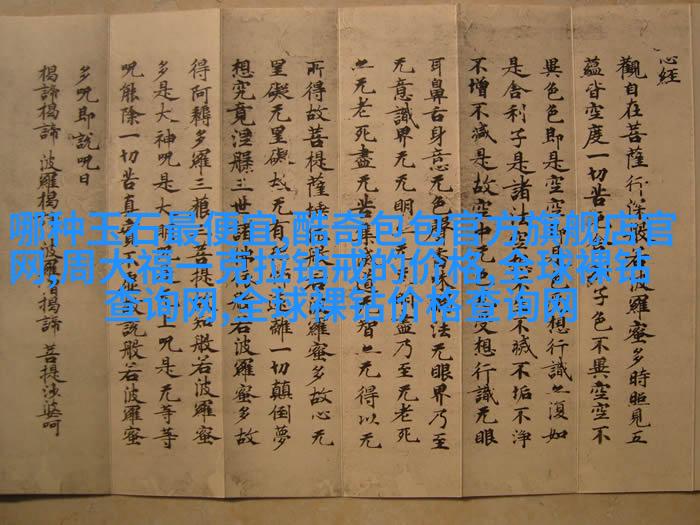 心经
觀自在菩薩行深般若波羅蜜多時照見五
蘊皆空度一切苦子色不異空空不
異色色即是空空即是想行識亦復如
是舍利子是諸法空不不滅不垢不净
不增不減是故空中无色受想行識无眼
耳鼻舌身意无色聲香味法无眼界乃至
无意識界无无明亦无明盡乃至无老死
亦无老死盡无苦集滅道无智亦无得以无
所得故菩提薩埵依般若波羅蜜多故心无
罣礙无罣礙故无有離一切顛倒夢
想究竟涅槃三世諸佛依般若波羅蜜多故
得阿耨多羅三藐三菩提故知般若波羅蜜
多是大神呪是大明上呪是无等等
呪能除一切苦真實不虛故說般若波羅蜜
多呪即說呪曰
揭諦揭諦 波羅揭 揭諦 菩提娑婆呵
哪种玉石最便宜,酷奇包包官方旗舰店官
网,周大福一克拉钻戒的价格,全球裸钻
查询网,全球裸钻价格查询网